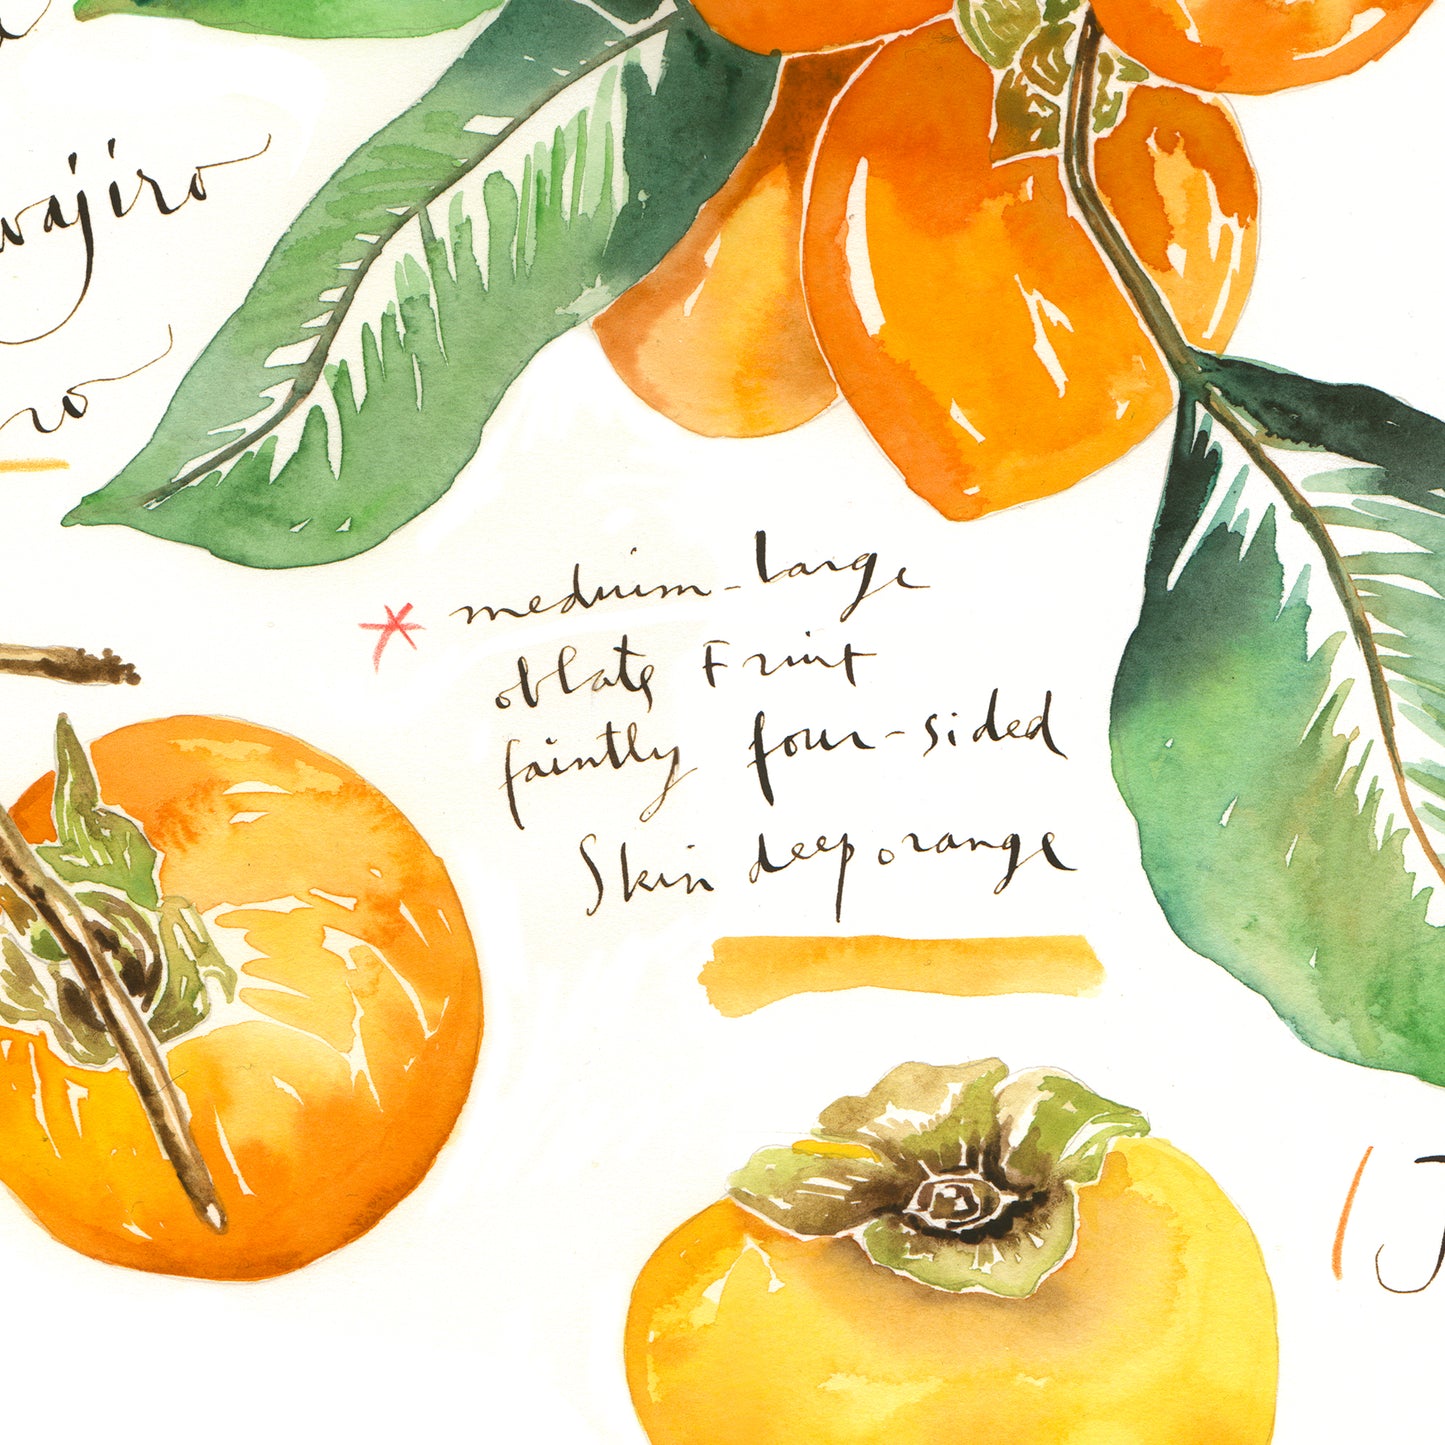 wajiro
ro
medium-large
oblate Fruit
faintly four-sided
Skin deep orange
J